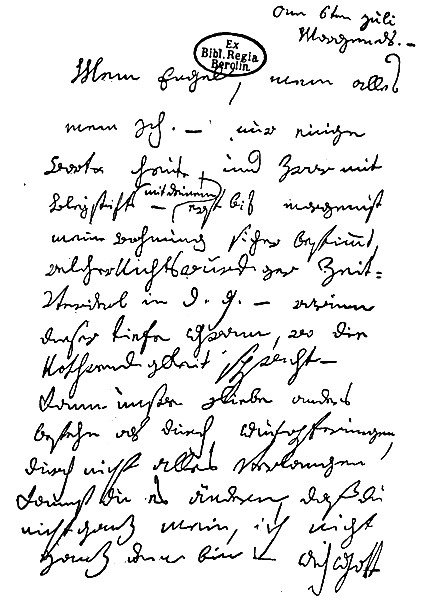 am 6ten juli
Morgends. –
Ex
Bibl. Regia
Berolin
Mein Engel, mein alles
mein Ich. – nur einige
Worte heute, und zwar mit
Bleystift – (mit deinem) erst bis morgen ist
meine wohnung sicher bestimmt,
welcher Nichtswürdiger Zeit-
Verderb in d. g. – warum
dieser tiefe Gram, wo die
Nothwendigkeit spricht –
Kann unsre Liebe anders
bestehn als durch Aufopferungen,
durch nicht alles verlangen
kannst du es ändern, daß du
nicht ganz mein, ich nicht
ganz dein bin – Ach Gott